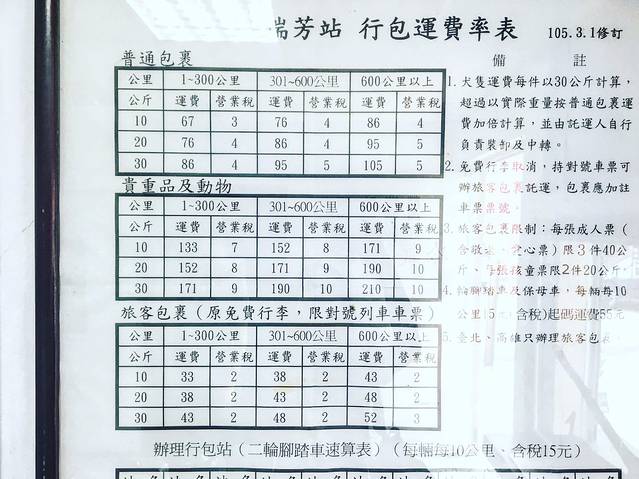 瑞芳站 行包運費率表 105.3.1修訂
普通包裹
公里 1~300公里 301~600公里 600公里以上
公斤 運費 營業稅 運費 營業稅 運費 營業稅
10 67 3 76 4 86 4
20 76 4 86 4 95 5
30 86 4 95 5 105 5
貴重品及動物
公里 1~300公里 301~600公里 600公里以上
公斤 運費 營業稅 運費 營業稅 運費 營業稅
10 133 7 152 8 171 9
20 152 8 171 9 190 10
30 171 9 190 10 210 10
旅客包裹（原免費行李，限對號列車車票）
公里 1~300公里 301~600公里 600公里以上
公斤 運費 營業稅 運費 營業稅 運費 營業稅
10 33 2 38 2 43 2
20 38 2 43 2 48 2
30 43 2 48 2 52 3
備 註
1. 犬隻運費每件以30公斤計算，
超過以實際重量按普通包裹運
費加倍計算，並由託運人自行
負責裝卸及中轉。
2. 免費行李取消，持對號車票可
辦旅客包裹託運，包裹應加註
車票票號。
3. 旅客包裹限制：每張成人票（
含敬老、愛心票）限3件40公
斤、每張孩童票限2件20公斤
4. 輪腳踏車及保母車，每輛每10
公里15元（含稅）起碼運費55元
5. 臺北、高雄只辦理旅客包裹。
辦理行包站（二輪腳踏車速算表）（每輛每10公里、含稅15元）